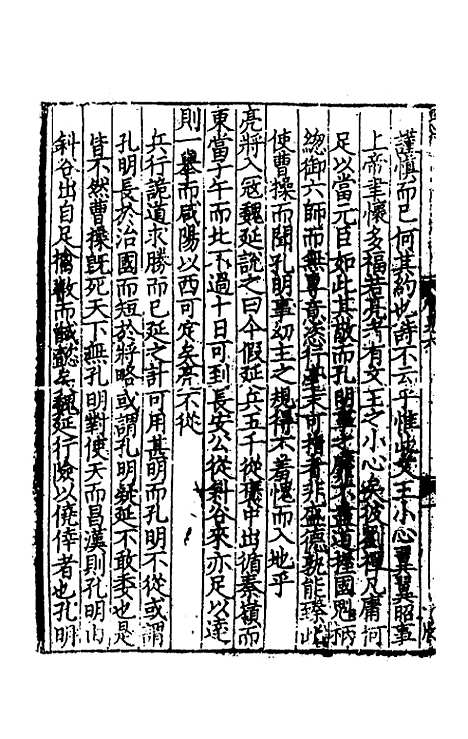 謹慎而已何其約也詩不云乎惟此文王小心翼翼昭事
上帝聿懷多福若亮者有文王之小心矣彼劉禪凡庸何
足以當元臣如此其敬而孔明事之靡不盡道擅國冠柄
總御六師而無專意恣行毫末可指者非盛德孰能臻此
使曹操而聞孔明事幼主之規得不羞愧而入地乎
亮將入寇魏延說之曰今假延兵五千從褒中出循秦嶺而
東當子午而北不過十日可到長安公從斜谷來亦足以達
則一舉而咸陽以西可定矣亮不從
兵行詭道求勝而已延之計可用甚明而孔明不從或謂
孔明長於治國而短於將略或謂孔明疑延不敢委也是
皆不然曹操既死天下無孔明對使天而昌漢則孔明由
斜谷出自足擒敵而馘懿矣魏延行險以僥倖者也孔明